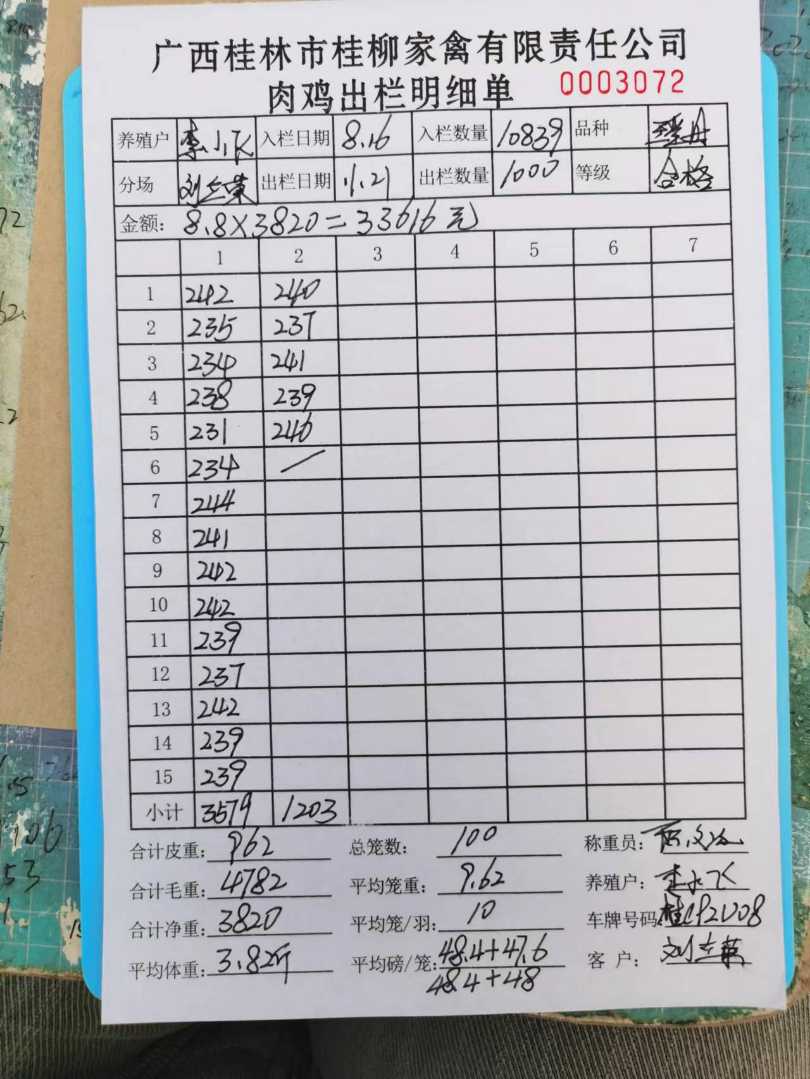 广西桂林市桂柳家禽有限责任公司
肉鸡出栏明细单 0003072
养殖户 李小飞 入栏日期 8.16 入栏数量 10839 品种
分场 刘兰荣 出栏日期 11.21 出栏数量 1000 等级 合格
金额: 8.8×3820=33616元
1 2 3 4 5 6 7
1 242 240
2 235 237
3 234 241
4 238 239
5 231 246
6 234 /
7 244
8 241
9 242
10 242
11 239
12 237
13 242
14 239
15 239
小计 3579 1203
合计皮重: 962 总笼数: 100 称重员:
合计毛重: 4782 平均笼重: 9.62 养殖户: 李小飞
合计净重: 3820 平均笼/羽: 10 车牌号码:
平均体重: 3.82斤 平均磅/笼: 48.4+47.6 客 户: 刘兰荣
48.4+48